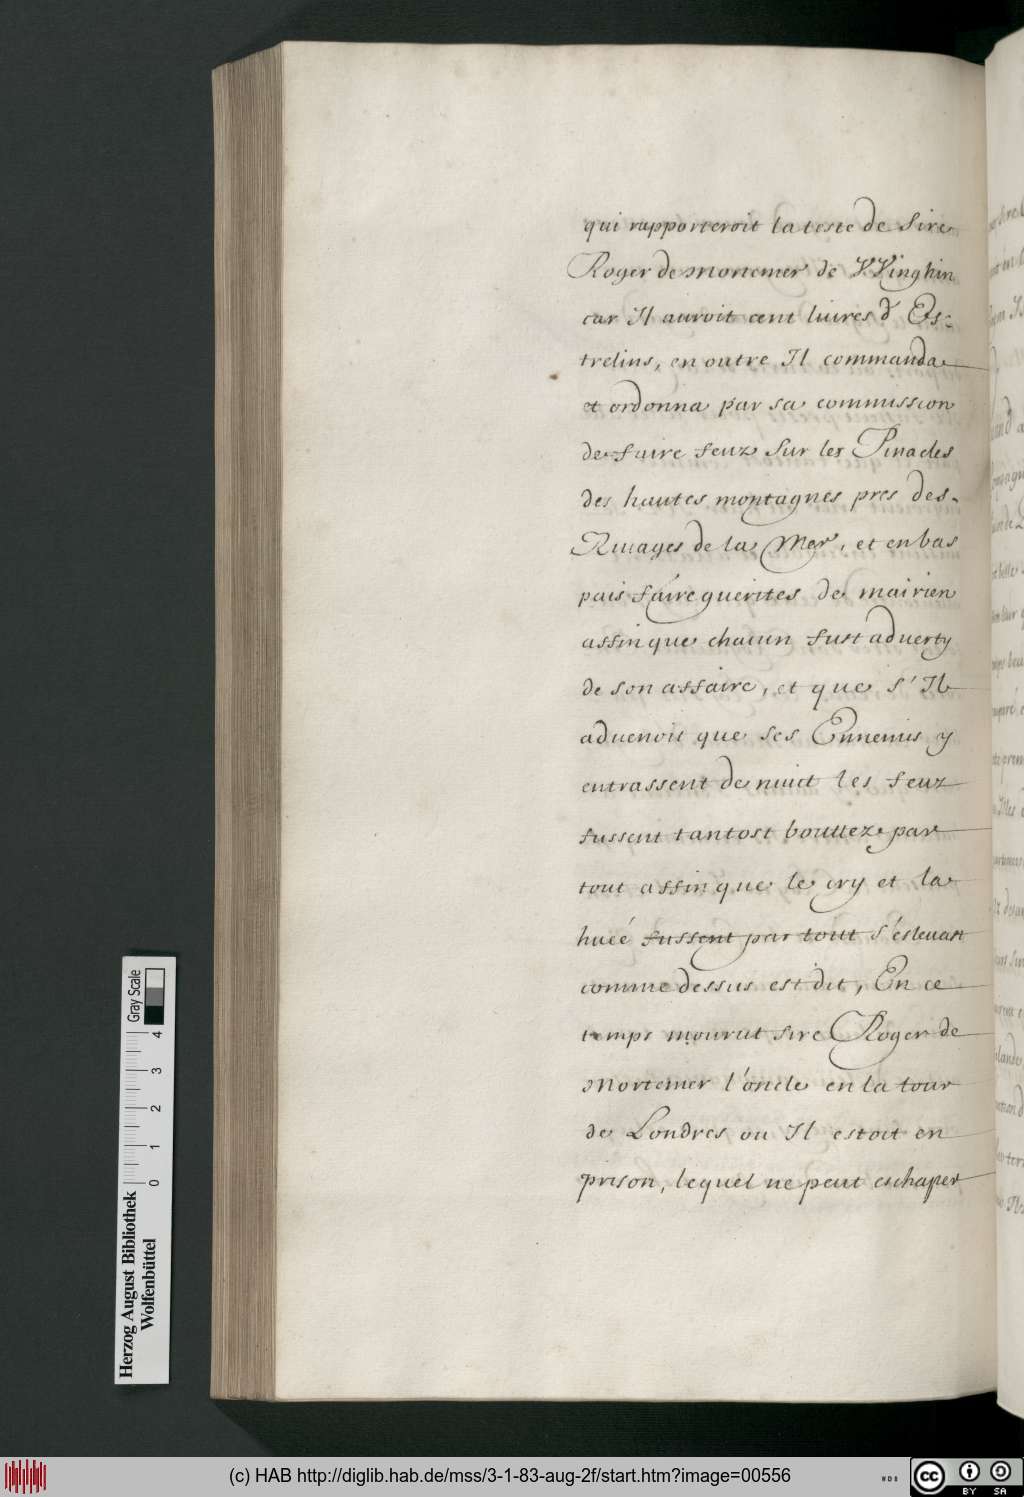 qui rapporteroit la teste de Sire
Roger de Mortemer de VVinghin
car Il auroit cent liures d'Es-
trelins, en outre Il commanda
et ordonna par sa commission
de faire feuz sur les Pinacles
des hautes montagnes pres des
Riuages de la Mer, et en bas
pais faire guerites de mairien
affin que chacun fust aduerty
de son affaire, et que s'Il
aduenoit que ses Ennemis y
entrassent de nuict les feuz
fussent tantost boutlez par
tout affin que le cry et la
hueé fussent par tout s'esleuast
comme dessus est dit, En ce
temps mourut sire Roger de
Mortemer l'oncle en la tour
de Londres ou Il estoit en
prison, lequel ne peut eschaper
Herzog August Bibliothek
Wolfenbüttel
0 1 2 3 4
Gray Scale
(c) HAB http://diglib.hab.de/mss/3-1-83-aug-2f/start.htm?image=00556
WDB
cc BY SA